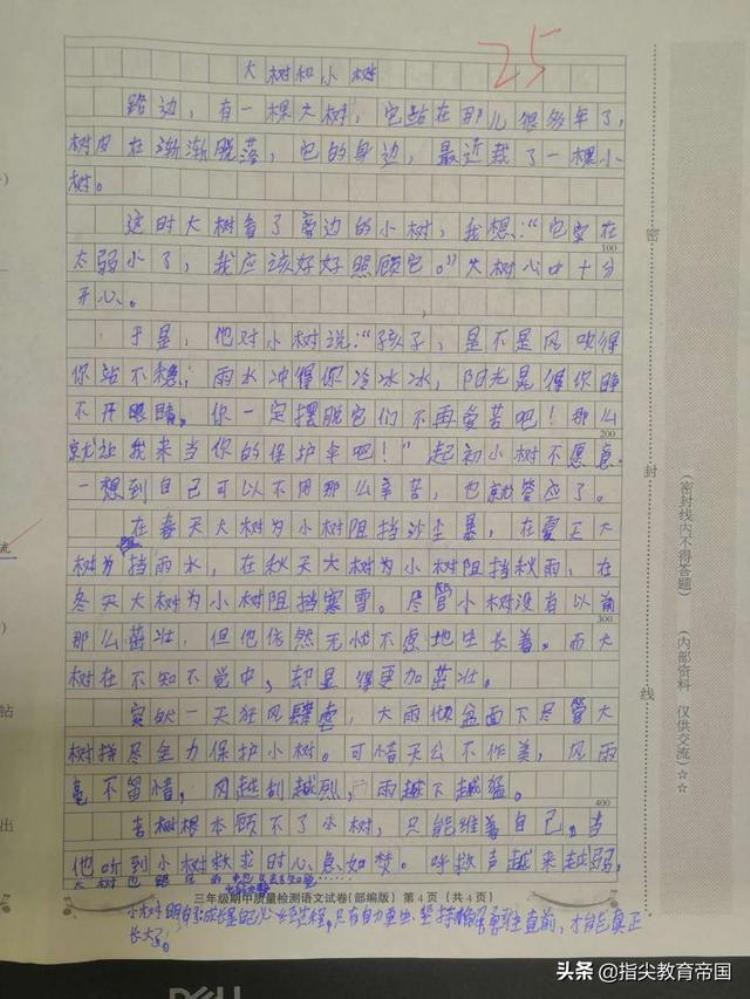 25
大树和小树
路边，有一棵大树，它站在那儿很多年了，
树皮在渐渐脱落，它的身边，最近栽了一棵小
树。
这时大树看了旁边的小树，我想：“它实在
100
太弱小了，我应该好好照顾它。”大树心中十分
开心。
于是，他对小树说：“孩子，是不是风吹得
你站不稳；雨水冲得你冷冰冰，阳光晃得你睁
不开眼睛。你一定摆脱它们不再受苦吧！那么
200
就让我来当你的保护伞吧！”起初小树不愿意，
一想到自己可以不用那么辛苦，也就答应了。
在春天大树为小树阻挡沙尘暴，在夏天大
树为阻挡雨水，在秋天大树为小树阻挡秋雨，在
冬天大树为小树阻挡寒雪。尽管小树没有以前
300
那么茁壮，但他依然无忧不虑地生长着。而大
树在不知不觉中，却显得更加茁壮。
突然一天狂风肆虐，大雨倾盆而下尽管大
树拼尽全力保护小树。可惜天公不作美，风雨
毫不留情，风越刮越烈，雨越下越猛。
400
树根本顾不了小树，只能维着自己，当
他听到小树救求时心急如焚。呼救声越来越弱，
大树也
三年级期中质量检测语文试卷(部编版) 第4页 (共4页)
小树明白成长是自己必经过程，只有自力更生、坚持勇往直前，才能真正
长大了。
密
封
线
(密封线内不得答题)
(内部资料 仅供交流)☆☆
钻
出
DELL
头条 @指尖教育帝国